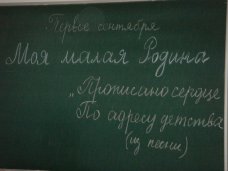 Первое сентября
Моя малая Родина
„Прописано сердце
По адресу детства
(из песни)